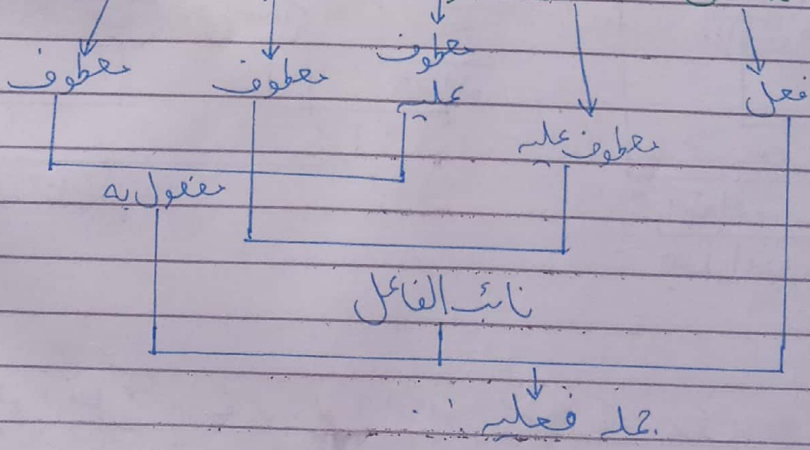 فعل معطوف علیہ معطوف علیہ معطوف معطوف
مفعول بہ
نائب الفاعل
جملہ فعلیہ